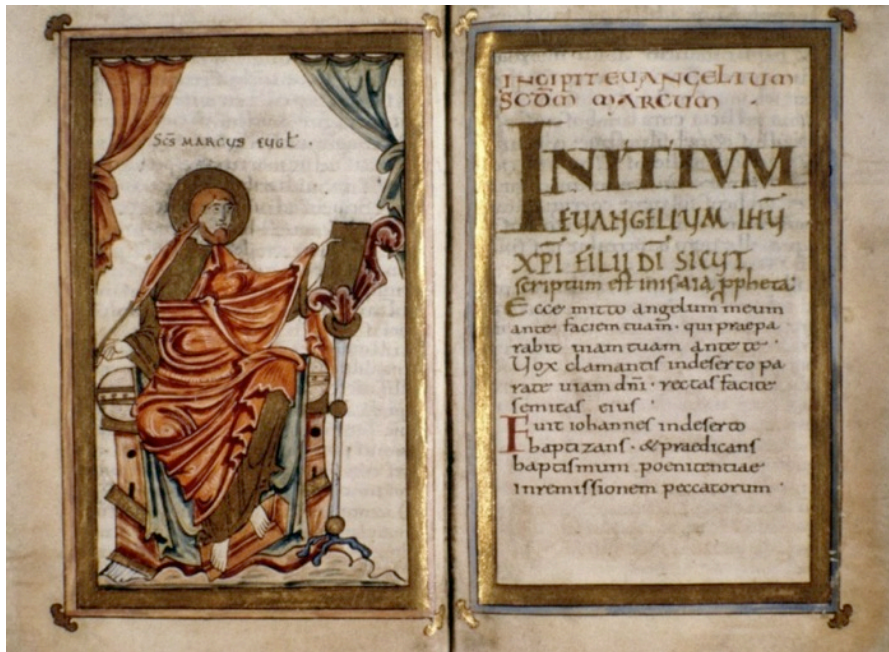 SCS MARCUS EUGL.
INCIPIT EVANGELIUM
SCDM MARCUM .
INITIVM
EUANGELIUM IHU
XPI FILII DI SICUT
scriptum est in isaia ppheta:
Ecce mitto angelum meum
ante faciem tuam. qui praepa
rabit uiam tuam ante te.
Uox clamantis in deserto pa
rate uiam dni. rectas facite
semitas eius .
Fuit iohannes in deserto
baptizans. & praedicans
baptismum poenitentiae
in remissionem peccatorum .